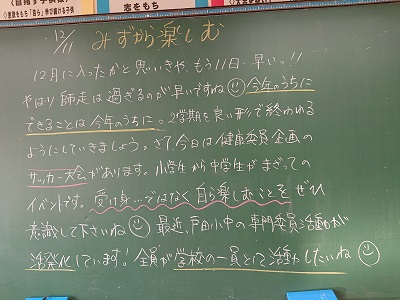 志をもち
意欲をもち「自ら」学び続ける子供
12/11 みずから楽しむ
12月に入ったかと思いきや、もう11日…早いっ!!
やはり師走は過ぎるのが早いですね 今年のうちに
できることは今年のうちに。2学期を良い形で終われる
ようにしていきましょう。さて、今日は健康委員企画の
サッカー大会があります。小学生から中学生がまざっての
イベントです。受け身…ではなく自ら楽しむことをぜひ
意識して下さいね 最近、戸田小中の専門委員活動が
活発化しています!全員が学校の一員として活動したいね